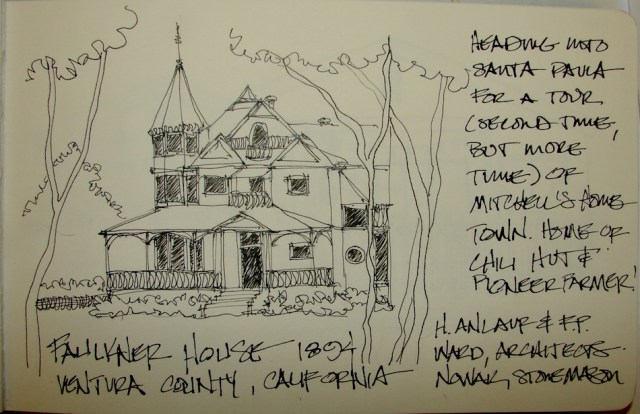 HEADING INTO
SANTA PAULA
FOR A TOUR
(SECOND TIME,
BUT MORE
TIME) OF
MITCHELL'S HOME
TOWN. HOME OF
CHILI HUT &
PIONEER FARMER!
H. ANLAUF & F.P.
WARD, ARCHITECTS.
NOWAK, STONEMASON
FAULKNER HOUSE 1894
VENTURA COUNTY, CALIFORNIA